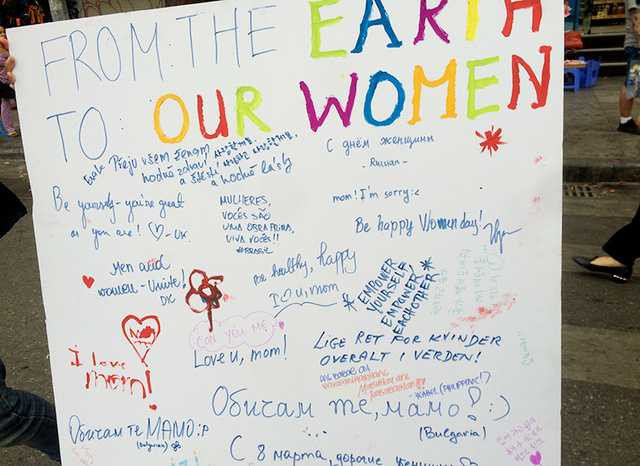 FROM: THE EARTH
TO: OUR WOMEN
Přeju všem ženám
hodně zdraví
a štěstí
a hodně lásky
С днём женщины
- Russian -
Be yourself - you're great
as you are! ♡ - UK
MULHERES,
VOCÊS SÃO
UMA OBRA PRIMA,
VIVA VOCÊS!!
#BRASIL
mom! I'm sorry :c
Be happy Women day!
Men and
women - Unite!
DK
Be healthy, happy
I ♡ u, mom
*EMPOWER
YOURSELF
EMPOWER
EACHOTHER*
CON YÊU MẸ
Love u, mom!
I love
mom!
LIGE RET FOR KVINDER
OVERALT I VERDEN!
ANG BABAE AY
(PHILIPPINE!)
Обичам те, мамо! :)
(Bulgaria)
Обичам те МАМО :P
(Bulgarian)
С 8 марта, дорогие женщины